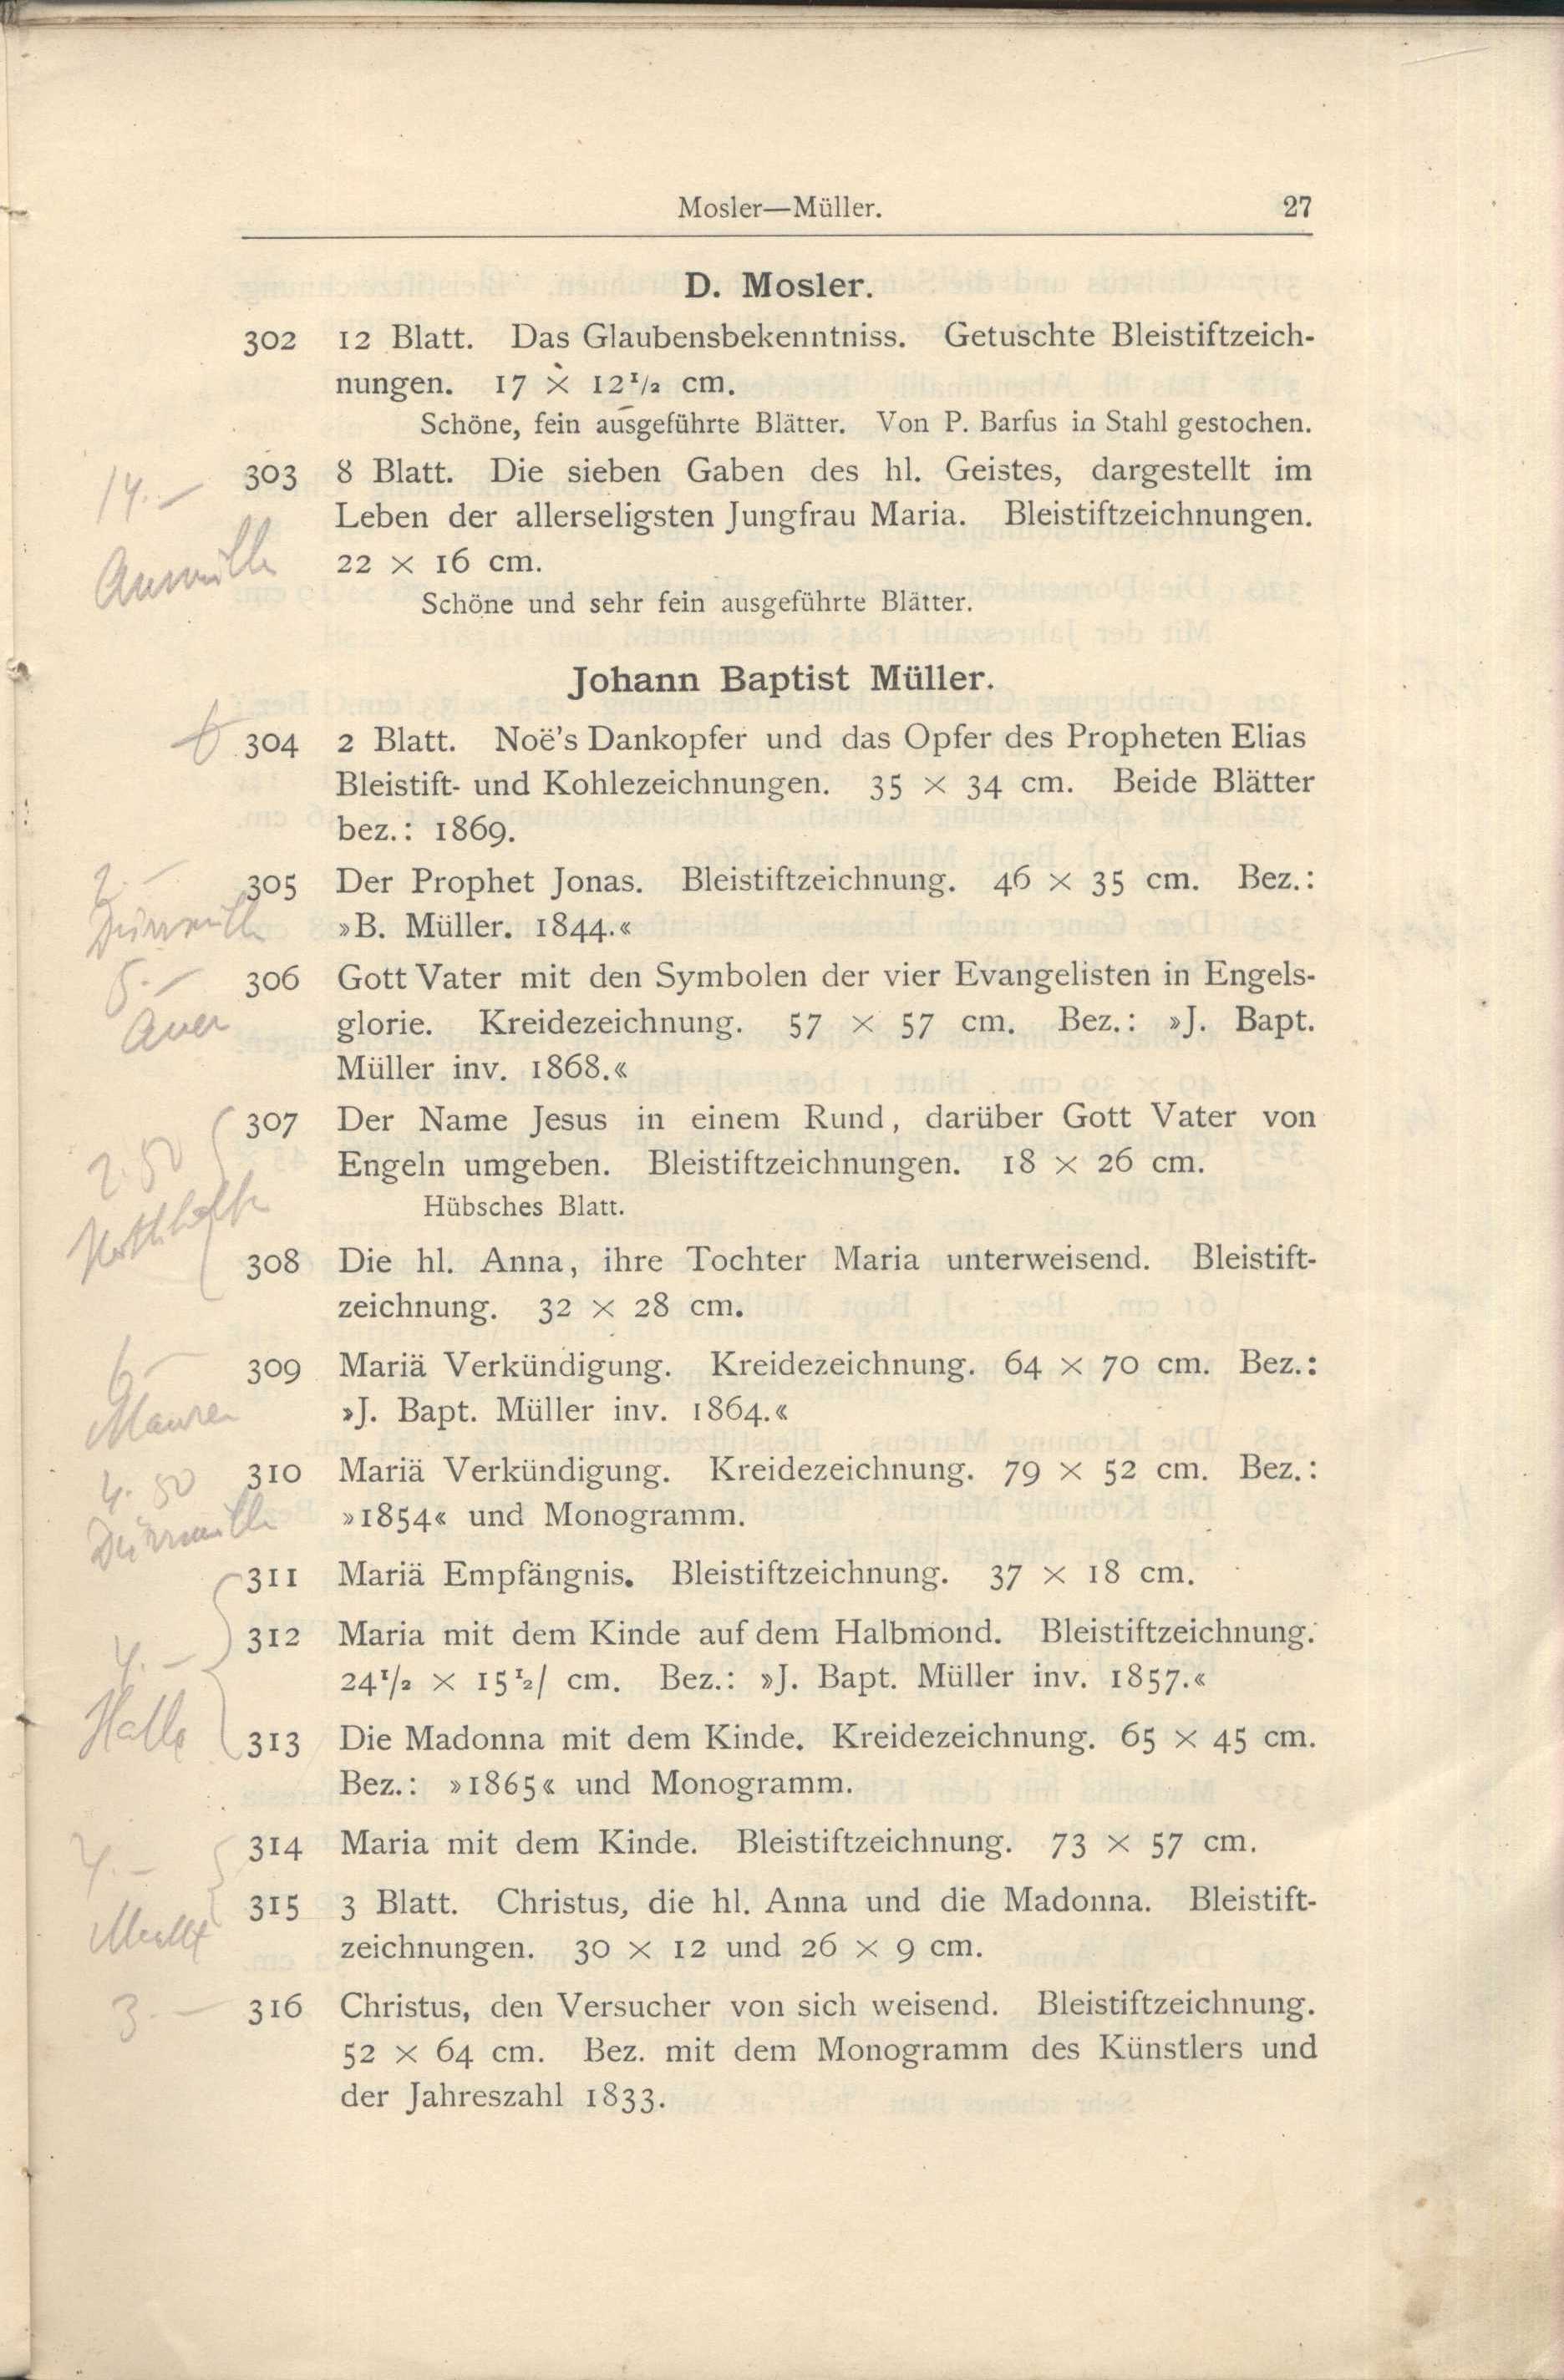 Mosler—Müller. 27
D. Mosler.
302 12 Blatt. Das Glaubensbekenntniss. Getuschte Bleistiftzeich-
nungen. 17 × 12¹/₂ cm.
Schöne, fein ausgeführte Blätter. Von P. Barfus in Stahl gestochen.
14.— 303 8 Blatt. Die sieben Gaben des hl. Geistes, dargestellt im
Leben der allerseligsten Jungfrau Maria. Bleistiftzeichnungen.
22 × 16 cm.
Schöne und sehr fein ausgeführte Blätter.
Johann Baptist Müller.
304 2 Blatt. Noë's Dankopfer und das Opfer des Propheten Elias
Bleistift- und Kohlezeichnungen. 35 × 34 cm. Beide Blätter
bez.: 1869.
2.— 305 Der Prophet Jonas. Bleistiftzeichnung. 46 × 35 cm. Bez.:
»B. Müller. 1844.«
306 Gott Vater mit den Symbolen der vier Evangelisten in Engels-
Auer glorie. Kreidezeichnung. 57 × 57 cm. Bez.: »J. Bapt.
Müller inv. 1868.«
307 Der Name Jesus in einem Rund, darüber Gott Vater von
2.50 Engeln umgeben. Bleistiftzeichnungen. 18 × 26 cm.
Hübsches Blatt.
308 Die hl. Anna, ihre Tochter Maria unterweisend. Bleistift-
zeichnung. 32 × 28 cm.
6.— 309 Mariä Verkündigung. Kreidezeichnung. 64 × 70 cm. Bez.:
»J. Bapt. Müller inv. 1864.«
4.50 310 Mariä Verkündigung. Kreidezeichnung. 79 × 52 cm. Bez.:
»1854« und Monogramm.
311 Mariä Empfängnis. Bleistiftzeichnung. 37 × 18 cm.
312 Maria mit dem Kinde auf dem Halbmond. Bleistiftzeichnung.
4.— 24¹/₂ × 15¹₂/ cm. Bez.: »J. Bapt. Müller inv. 1857.«
Halle 313 Die Madonna mit dem Kinde. Kreidezeichnung. 65 × 45 cm.
Bez.: »1865« und Monogramm.
4.— 314 Maria mit dem Kinde. Bleistiftzeichnung. 73 × 57 cm.
315 3 Blatt. Christus, die hl. Anna und die Madonna. Bleistift-
zeichnungen. 30 × 12 und 26 × 9 cm.
3.— 316 Christus, den Versucher von sich weisend. Bleistiftzeichnung.
52 × 64 cm. Bez. mit dem Monogramm des Künstlers und
der Jahreszahl 1833.